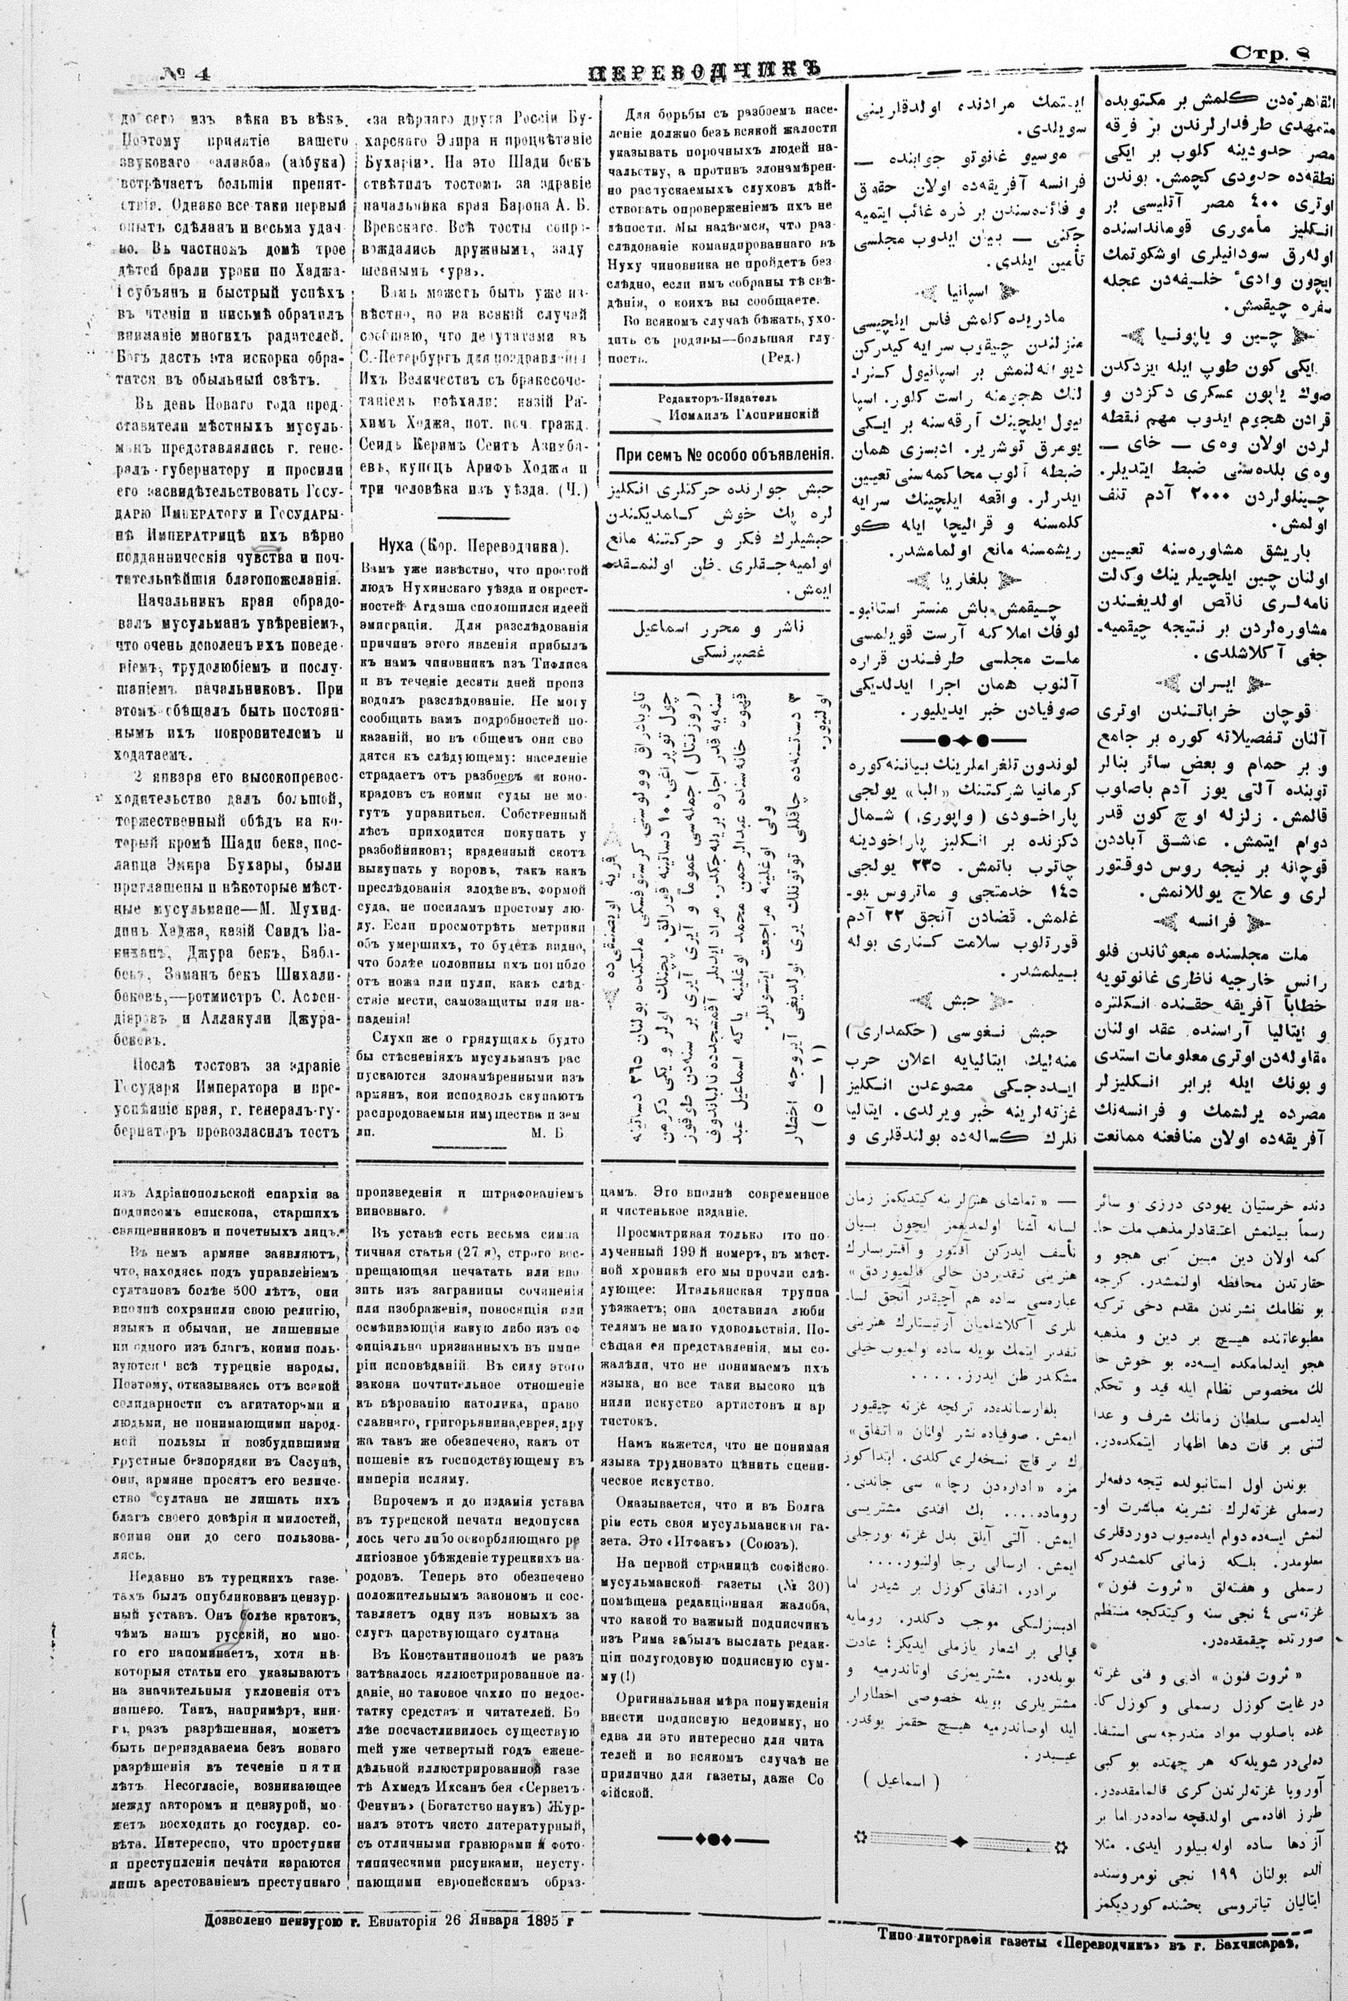 № 4
ПЕРЕВОДЧИКЪ
Стр. 8
до сего изъ вѣка въ вѣкъ.
Поэтому принятіе вашего
звуковаго «алифба» (азбука)
встрѣчаетъ большіи препят-
ствія. Однако все таки первый
опытъ сдѣланъ и весьма удач
но. Въ частномъ домѣ трое
дѣтей брали уроки по Хаджа-
и субъянъ и быстрый успѣхъ
въ чтеніи и письмѣ обратилъ
вниманіе многихъ радителей.
Богъ дастъ эта искорка обра-
тится въ обыльный свѣтъ.
Въ день Новаго года пред-
ставители мѣстныхъ мусуль-
манъ представлялись г. гене-
ралъ-губернатору и просили
его засвидѣтельствовать Госу-
дарю Императору и Государы-
нѣ Императрицѣ ихъ вѣрно
подданническія чувства и поч-
тительнѣйшія благопожеланія.
Начальникъ края обрадо-
валъ мусульманъ увѣреніемъ,
что очень доволенъ ихъ поведе-
ніемъ, трудолюбіемъ и послу-
шаніемъ начальниковъ. При
этомъ обѣщалъ быть постоян-
нымъ ихъ покровителемъ и
ходатаемъ.
2 января его высокопревос-
ходительство далъ большой,
торжественный обѣдъ на ко-
торый кромѣ Шади бека, пос-
ланца Эмира Бухары, были
приглашены и нѣкоторые мѣст-
ные мусульмане—М. Мухид-
динъ Хаджа, казій Саидъ Ба-
киханъ, Джура бекъ, Баба-
бекъ, Заманъ бекъ Шихали-
бековъ,—ротмистръ С. Асфен-
діяровъ и Аллакули Джура-
бековъ.
Послѣ тостовъ за здравіе
Государя Императора и пре-
успѣяніе края, г. генералъ-гу-
бернаторъ провозгласилъ тостъ
«за вѣрнаго друга Россіи Бу-
харскаго Эмира и процвѣтаніе
Бухаріи». На это Шади бекъ
отвѣтилъ тостомъ за здравіе
начальника края Барона А. Б.
Вревскаго. Всѣ тосты сопро-
вождались дружнымъ, заду
шевнымъ «ура».
Вамъ можетъ быть уже из-
вѣстно, но на всякій случай
сообщаю, что депутатами въ
С.-Петербургъ для поздравленія
Ихъ Величествъ съ бракосоче-
таніемъ поѣхали: казій Ра-
химъ Ходжа, пот. поч. гражд.
Сеидъ Керимъ Сеитъ Азимба-
евъ, купецъ Арифъ Ходжа и
три человѣка изъ уѣзда. (Ч.)
Нуха (Кор. Переводчика).
Вамъ уже извѣстно, что простой
людъ Нухинскаго уѣзда и окрест-
ностей Агдаша сполошился идеей
эмиграціи. Для разслѣдованія
причинъ этого явленія прибылъ
къ намъ чиновникъ изъ Тифлиса
и въ теченіе десяти дней произ
водилъ разслѣдованіе. Не могу
сообщить вамъ подробностей по-
казаній, но въ общемъ они сво
дятся къ слѣдующему: населеніе
страдаетъ отъ разбоевъ и коно-
крадовъ съ коими суды не мо-
гутъ управиться. Собственный
лѣсъ приходится покупать у
разбойниковъ; краденный скотъ
выкупать у воровъ, такъ какъ
преслѣдованія злодѣевъ, формой
суда, не посиламъ простому лю-
ду. Если просмотрѣть метрики
объ умершихъ, то будетъ видно,
что болѣе половины ихъ погибло
отъ ножа или пули, какъ слѣд-
ствіе мести, самозащиты или на-
паденія!
Слухи же о грядущихъ будто
бы стѣсненіяхъ мусульманъ рас
пускаются злонамѣренными изъ
армянъ, кои исподволь скупаютъ
распродоваемыя имущества и зем
ли. М. Б
Для борьбы съ разбоемъ насе-
леніе должно безъ всякой жалости
указывать порочныхъ людей на-
чальству, а противъ злонамѣрен-
но распускаемыхъ слуховъ дѣй-
ствовать опроверженіемъ ихъ не
лѣпости. Мы надѣемся, что раз-
слѣдованіе командированнаго въ
Нуху чиновника не пройдетъ без-
слѣдно, если имъ собраны тѣ свѣ-
дѣнія, о коихъ вы сообщаете.
Во всякомъ случаѣ бѣжать, ухо-
дить съ родины—большая глу-
пость. (Ред.)
Редакторъ-Издатель
Исмаилъ Гаспринскій
При семъ № особо объявленія.
حبش جوارنده حركتلرى انكليز
لره پك خوش كـامديكندن
حبشيلرك فكر و حركتنه مانع
اولميه جـقلرى ظن اولنمـقده
ايمش.
ناشر و محرر اسماعيل
غصپرنسكى
ايـتمك مرادنده اولدقلرينى
سويلدى.
موسيو غانوتو جوابنده —
فرانسه آفريقه‌ده اولان حقوق
و فائده‌سندن بر ذره غائب ايتميه
جكنى — بيان ايدوب مجلسى
تأمين ايلدى.
اسپانيا
مادريده كلمش فاس ايلچيسى
منزلندن چيقوب سرايه كيدركن
ضبطه آلوب محاكمه‌سنى تعيين
ايدرلر. واقعه ايلچينك سرايه
كلمسنه و قراليچا ايله كو
ريشمسنه مانع اولمامشدر.
بلغاريا
ملت مجلسى طرفندن قراره
آلنوب همان اجرا ايدلديكى
صوفيادن خبر ايديليور.
لوندون تلغرافلرينك بيانـنه كوره
كرمانيا شركتنك «البا» يولجى
پاراخودى (واپورى) شمال
دكزنده بر انكليز پاراخودينه
چاتوب باتمش. ٢٣٥ يولجى
١٤٥ خدمتجى و ماتروس بو-
غلمش. قضادن آنجق ٢٢ آدم
قورتلوب سلامت كنارى بوله
بيلمشدر.
حبش
حبش نـغوسى (حكمدارى)
منه‌ليك ايتالیايه اعلان حرب
ايـده‌جـكى مصوعدن انكـليز
غزته‌لرينه خبر ويرلدى. ايتاليا
نلرك كسـاله‌ده بولندقلرى و
القاهره‌دن كلمش بر مكتوبده
متمهدى طرفدارلرندن بر فرقه
مصر حدودينه كلوب بر ايكى
نطقه‌ده حدودى كچمش. بوندن
اوترى ٤٠٠ مصر آتليسى بر
انكليز مأمورى قومانداسنده
اوله‌رق سودانيلرى اوشكوتمك
ايچون وادئ خلـيفه‌دن عجله
سفره چيقمش.
چين و ياپونـيا
ايكى كون طوپ ايله ايزدكدن
صوك ياپون عسكرى دكزدن و
قرادن هجوم ايدوب مهم نقطه
لردن اولان وه‌ى — خاى —
وه‌ى بلده‌سنى ضبط ايتديلر.
چينلولردن ٢٠٠٠ آدم تلف
اولمش.
باريشق مشاوره‌سنه تعيين
اولنان چين ايلچيلرينك وكالت
نامه‌لرى ناقص اولديغندن
مشاوره‌لردن بر نتيجه چيقميه‌-
جغى آكلاشلدى.
ايـران
قوچان خراباتـندن اوترى
آلنان تفصيلاته كوره بر جامع
و بر حمام و بعض سائر بنالر
توبنده آلتى يوز آدم باصلوب
قالمش. زلزله اوچ كون قدر
دوام ايتمش. عاشق آباددن
قوچانه بر نيجه روس دوقتور
لرى و علاج يوللانمش.
فرانسه
ملت مجلسنده مبعوثاندن فلو
رانس خارجيه ناظرى غانوتويه
خطاباً آفريقه حقنده انكلتره
و ايتاليا آراسنده عقد اولنان
مقاوله‌دن اوترى معلومات استدى
و بونك ايله برابر انكليزلر
مصرده يرلشمك و فرانسه‌نك
آفريقه‌ده اولان منافعنه ممانعت
изъ Адріанопольской епархіи за
подписомъ епископа, старшихъ
священниковъ и почетныхъ лицъ.
Въ немъ армяне заявляютъ,
что, находясь подъ управленіемъ
султановъ болѣе 500 лѣтъ, они
вполнѣ сохранили свою религію,
языкъ и обычаи, не лишенные
ни одного изъ благъ, коими поль-
зуются всѣ турецкіе народы.
Поэтому, отказываясь отъ всякой
солидарности съ агитаторами и
людьми, не понимающими народ-
ной пользы и возбудившими
грустные безпорядки въ Сасунѣ,
они, армяне просятъ его величе-
ство султана не лишать ихъ
благъ своего довѣрія и милостей,
коими они до сего пользова-
лись.
Недавно въ турецкихъ газе-
тахъ былъ опубликованъ цензур-
ный уставъ. Онъ болѣе кратокъ,
чѣмъ нашъ русскій, но мно-
го его напоминаетъ, хотя нѣ-
которыя статьи его указываютъ
на значительныя уклоненія отъ
нашего. Такъ, напримѣръ, кни-
га, разъ разрѣшенная, можетъ
быть переиздаваема безъ новаго
разрѣшенія въ теченіе пяти
лѣтъ. Несогласіе, возникающее
между авторомъ и цензурой, мо-
жетъ восходить до государ. со-
вѣта. Интересно, что проступки
и преступленія печати караются
лишь арестованіемъ преступнаго
произведенія и штрафованіемъ
виновнаго.
Въ уставѣ есть весьма симпа
тичная статья (27 я), строго вос-
прещающая печатать или вво
зить изъ заграницы сочиненія
или изображенія, поносящія или
осмѣивающія какую либо изъ оф
фиціально признанныхъ въ импе
ріи исповѣданій. Въ силу этого
закона почтительное отношеніе
къ вѣрованію католика, право
славнаго, григорьянина, еврея, дру
жа такъ же обезпечено, какъ от
ношеніе къ господствующему въ
имперіи исляму.
Впрочемъ и до изданія устава
въ турецкой печати недопуска
лось чего либо оскорбляющаго ре
лигіозное убѣжденіе турецкихъ на-
родовъ. Теперь это обезпечено
положительнымъ закономъ и сос-
тавляетъ одну изъ новыхъ за
слугъ царствующаго султана
Въ Константинополѣ не разъ
затѣвалось иллюстрированное из-
даніе, но таковое чахло по недос-
татку средствъ и читателей. Бо
лѣе посчастливилось существую
щей уже четвертый годъ ежене-
дѣльной иллюстрированной газе
тѣ Ахмедъ Ихсанъ бея «Серветъ-
Фенунъ» (Богатство наукъ) Жур-
налъ этотъ чисто литературный,
съ отличными гравюрами и фото-
типическими рисунками, неусту-
пающими европейскимъ образ-
цамъ. Это вполнѣ современное
и чистенькое изданіе.
Просматривая только что по-
лученный 199 й номеръ, въ мѣст-
ной хроникѣ его мы прочли слѣ-
дующее: Итальянская труппа
уѣзжаетъ; она доставила люби
телямъ не мало удовольствія. По-
сѣщая ея представленія, мы со-
жалѣли, что не понимаемъ ихъ
языка, но все таки высоко цѣ
нили искуство артистовъ и ар
тистокъ.
Намъ кажется, что не понимая
языка трудновато цѣнить сцени-
ческое искуство.
Оказывается, что и въ Болга
ріи есть своя мусульманская га-
зета. Это «Итфакъ» (Союзъ).
На первой страницѣ софійско-
мусульманской газеты (№ 30)
помѣщена редакціонная жалоба,
что какой то важный подписчикъ
изъ Рима забылъ выслать редак-
ціи полугодовую подписную сум-
му (!)
Оригинальная мѣра понужденія
внести подписную недоимку, но
едва ли это интересно для чита
телей и во всякомъ случаѣ не
прилично для газеты, даже Со
фійской.
— «تماشاى هنرلرينه كيتديكمز زمان
لسانه آشنا اولمديغمز ايچون بسيان
تأسف ايدركن آقتور و آقتريسارك
هنرينى تقديردن خالى قالميوردق»
مشكلدر ظن ايدرز.....
بلغارستانده‌ده تركجه غزته چيقيور
ايمش. صوفياده نشر اولنان «اتفاق»
ك بر قاچ نسخه‌لرى كلدى. ابتدا كوز
مزه «اداره‌دن رجا» سى چاندى.
روماده.... بك افندى مشتريسى
ايمش. آلتى آيلق بدل غزته بورجلى
ايمش. ارسالى رجا اولنيور....
برادر. اتفاق كوزل بر شيدر اما
ادبسزلكى موجب دكلدر. رومايه
بويله‌در. مشتريمزى اوتاندرميه و
مشتريلرى بويله خصوصى اخطارلر
ايله اوصاندرميه هيچ حقمز يوقدر.
عـيبدر.
(اسماعيل)
دنده خرستيان يهودى درزى و سائر
رسماً بيلنمش اعتقادلر مذهب ملت حا-
كمه اولان دين مبين كبى هجو و
حقارتدن محافظه اولنمشدر. كرچه
بو نظامك نشرندن مقدم دخى تركه
مطبوعاتنده هيـچ بر دين و مذهبه
هجو ايدلمامكده ايسه‌ده بو خوش حا
لك مخصوص نظام ايله قيد و تحكم
ايدلمسى سلطان زمانك شرف و عدا
لتنى بر قات دها اظهار ايتمكده‌در.
بوندن اول استانبولده نيجه دفعه‌لر
رسملى غزته‌لرك نشرينه مباشرت او-
لنمش ايسه‌ده دوام ايده‌ميوب دوردقلرى
معلومدر. بلـكه زمانى كلمشدركه
رسملى و هفته‌لق «ثروت فنون»
غزته‌سى ٤ نجى سنه و كيتدكجه منتظم
صورتده چيقمقده‌در.
«ثروت فنون» ادبى و فنى غزته
در غايت كوزل رسملى و كوزل كا-
غده باصلوب مواد مندرجه‌سى استفا-
ده‌لى در شويله كه هر جهتده بو كبى
آوروپا غزته‌لرندن كرى قالمامقده‌در.
طرز افاده‌سى اولدقچه ساده‌در اما بر
آز دها ساده اوله بيلور ايدى. مثلا
الده بولنان ١٩٩ نجى نومروسنده
ايتاليان تياتروسى بحثنده كورديكمز
Дозволено цензурою г. Евпаторія 26 Января 1895 г
Типо-литографія газеты «Переводчикъ» въ г. Бахчисараѣ.